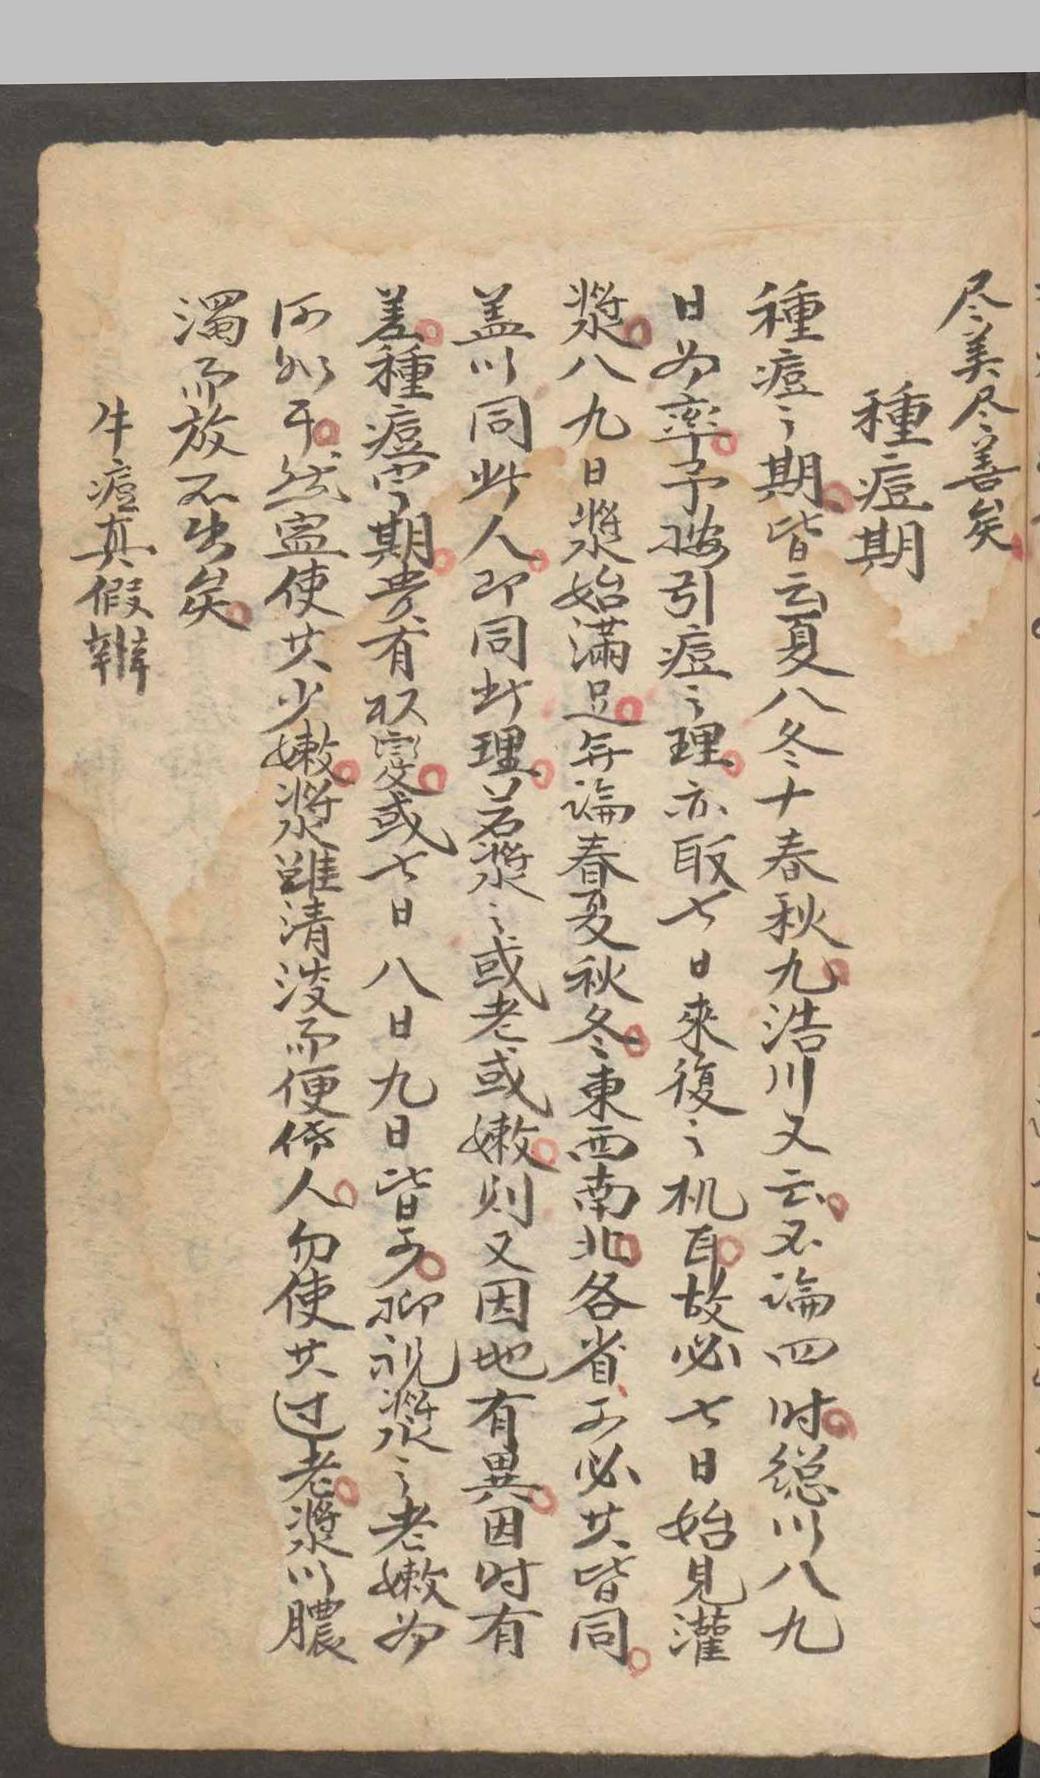 尽美尽善矣
種痘期
種痘之期皆云夏八冬十春秋九浩川又云不論四时総以八九
日为率予按引痘之理亦取七日來復之机耳故必七日始見灌
漿八九日漿始滿足毋論春夏秋冬東西南北各省可必其皆同
盖以同此人即同此理若漿之或老或嫩则又因地有異因时有
差種痘定期贵有权变或七日八日九日皆可聊視漿之老嫩为
何如耳然寍使其少嫩漿雖清淡而便传人勿使其过老漿以膿
濁而放不出矣
牛痘真假辨